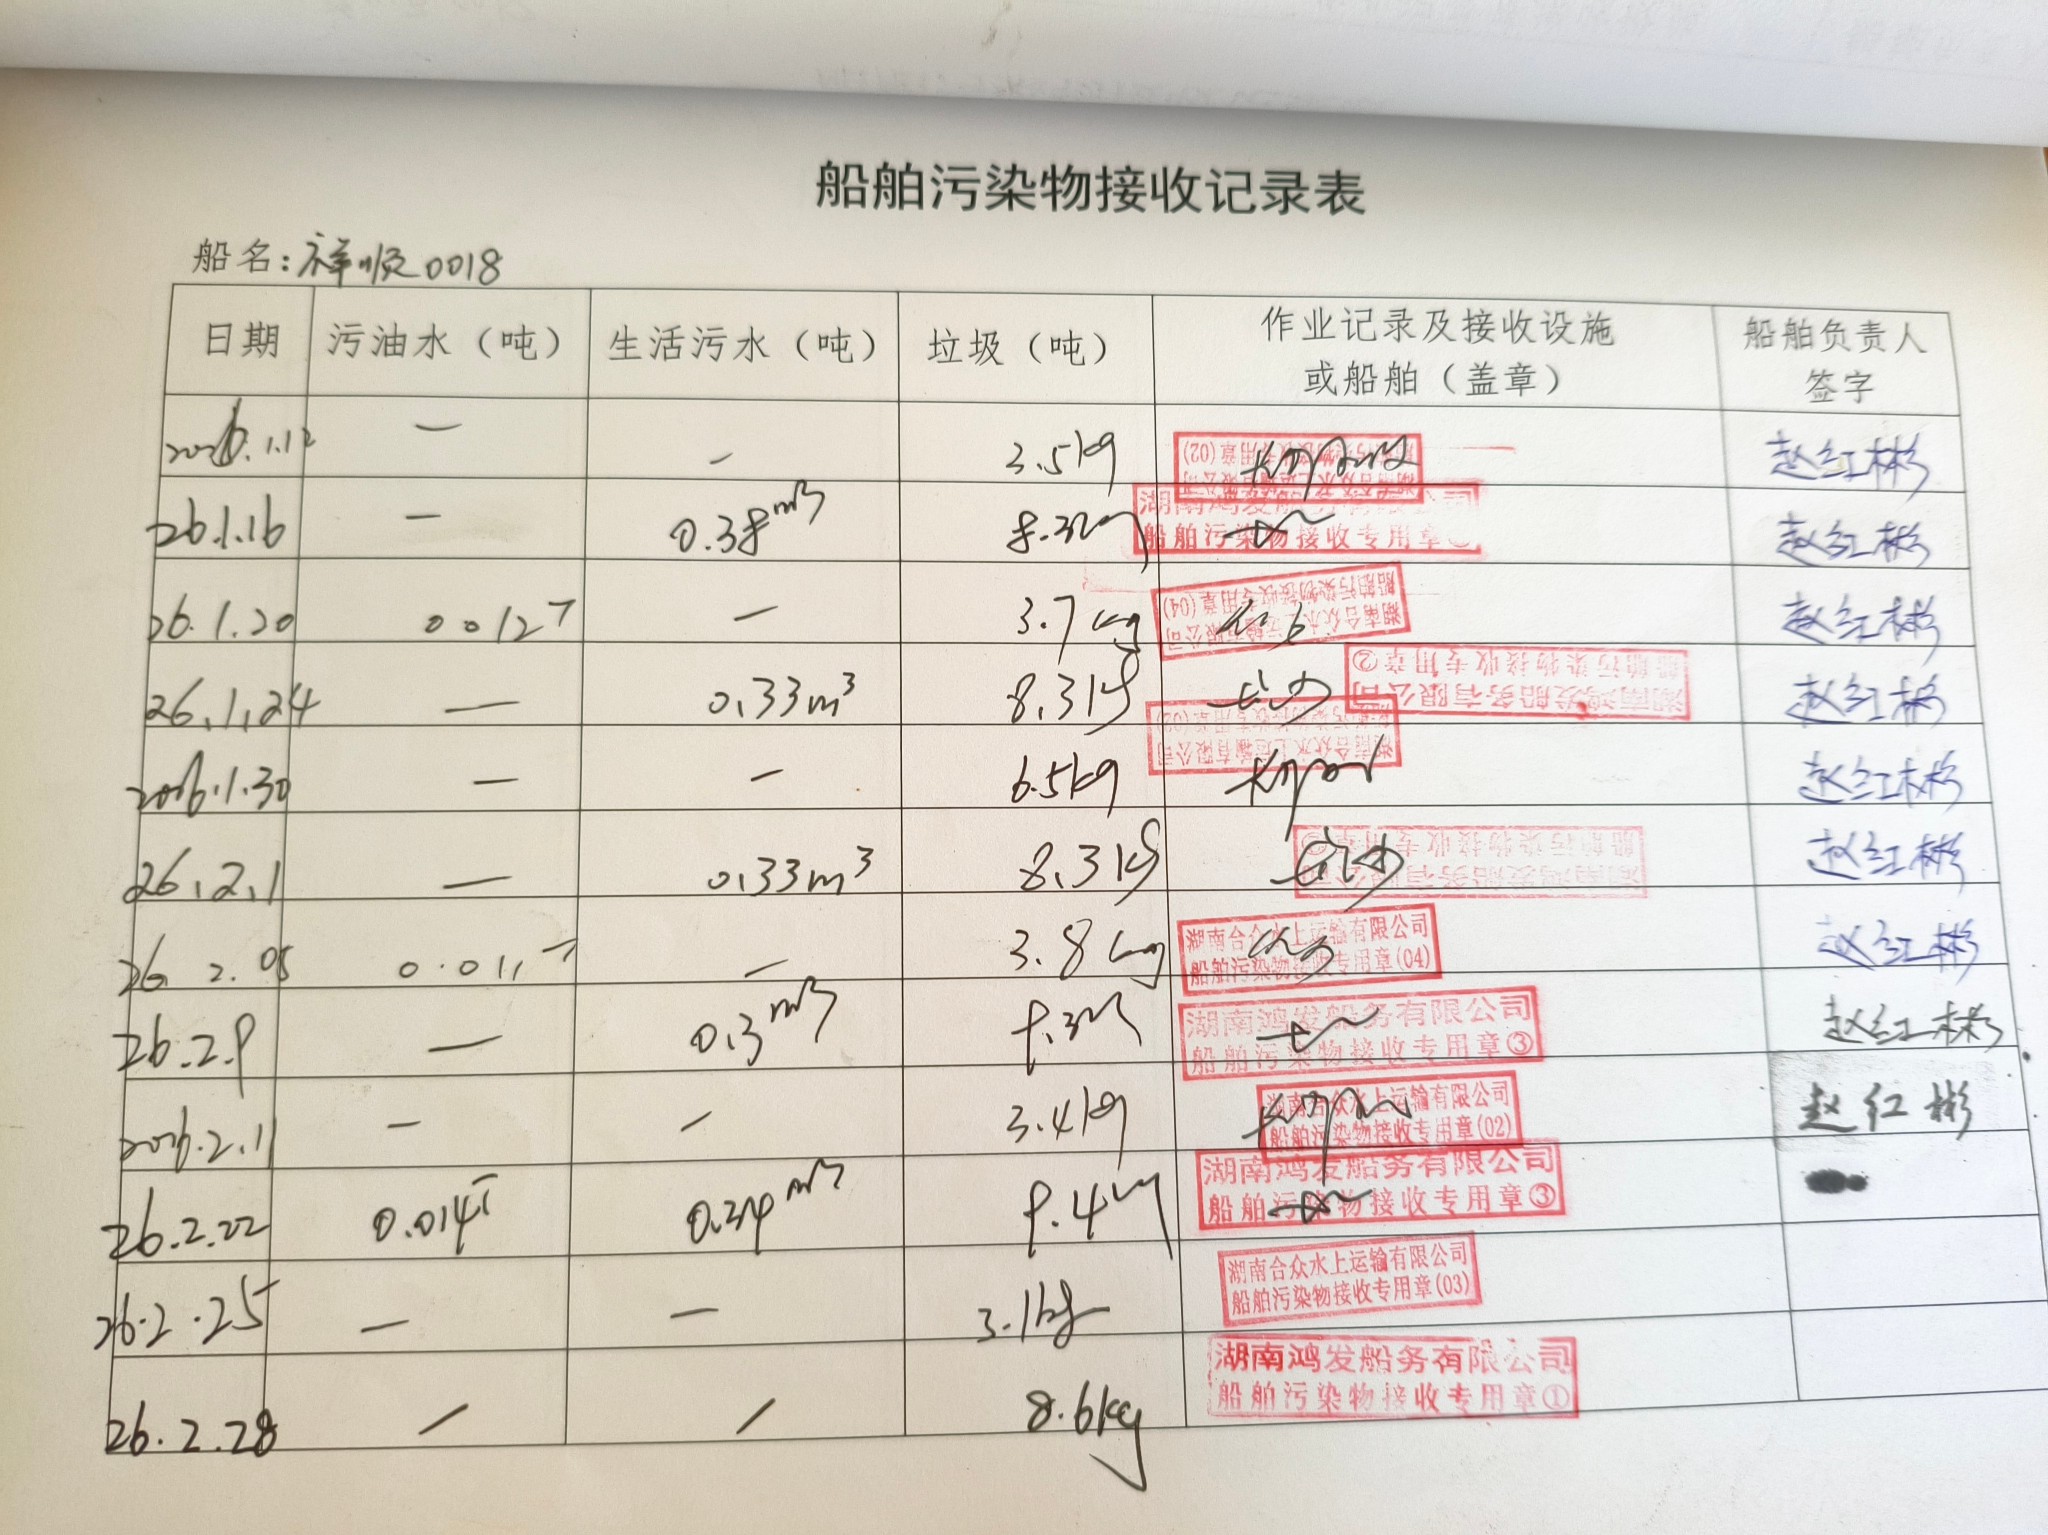 船舶污染物接收记录表
船名：祥顺0018
日期 污油水（吨） 生活污水（吨） 垃圾（吨） 作业记录及接收设施或船舶（盖章） 船舶负责人签字
2026.1.12 — — 3.5kg 赵红彬
26.1.16 — 0.38m³ 8.3kg 船舶污染物接收专用章 赵红彬
26.1.20 0.012T — 3.7kg 湖南合众水上运输有限公司 船舶污染物接收专用章(04) 赵红彬
26.1.24 — 0.33m³ 8.3kg 长沙 湖南鸿发船务有限公司 船舶污染物接收专用章② 赵红彬
2026.1.30 — — 6.5kg 湖南合众水上运输有限公司 船舶污染物接收专用章(02) 赵红彬
26.2.1 — 0.33m³ 8.3kg 长沙 湖南鸿发船务有限公司 船舶污染物接收专用章② 赵红彬
26.2.05 0.011T — 3.8kg 湖南合众水上运输有限公司 船舶污染物接收专用章(04) 赵红彬
26.2.9 — 0.3m³ 9.3kg 湖南鸿发船务有限公司 船舶污染物接收专用章③ 赵红彬
2026.2.11 — — 3.4kg 湖南合众水上运输有限公司 船舶污染物接收专用章(02) 赵红彬
26.2.22 0.014T 0.34m³ 9.4kg 湖南鸿发船务有限公司 船舶污染物接收专用章③
26.2.25 — — 3.1kg 湖南合众水上运输有限公司 船舶污染物接收专用章(03)
26.2.28 / / 8.6kg 湖南鸿发船务有限公司 船舶污染物接收专用章①